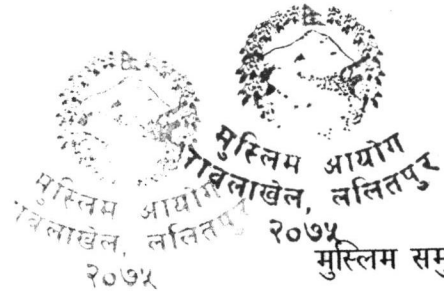 मुस्लिम आयोग
जावलाखेल, ललितपुर
२०७५
मुस्लिम आयोग
जावलाखेल, ललितपुर
२०७५
मुस्लिम समु